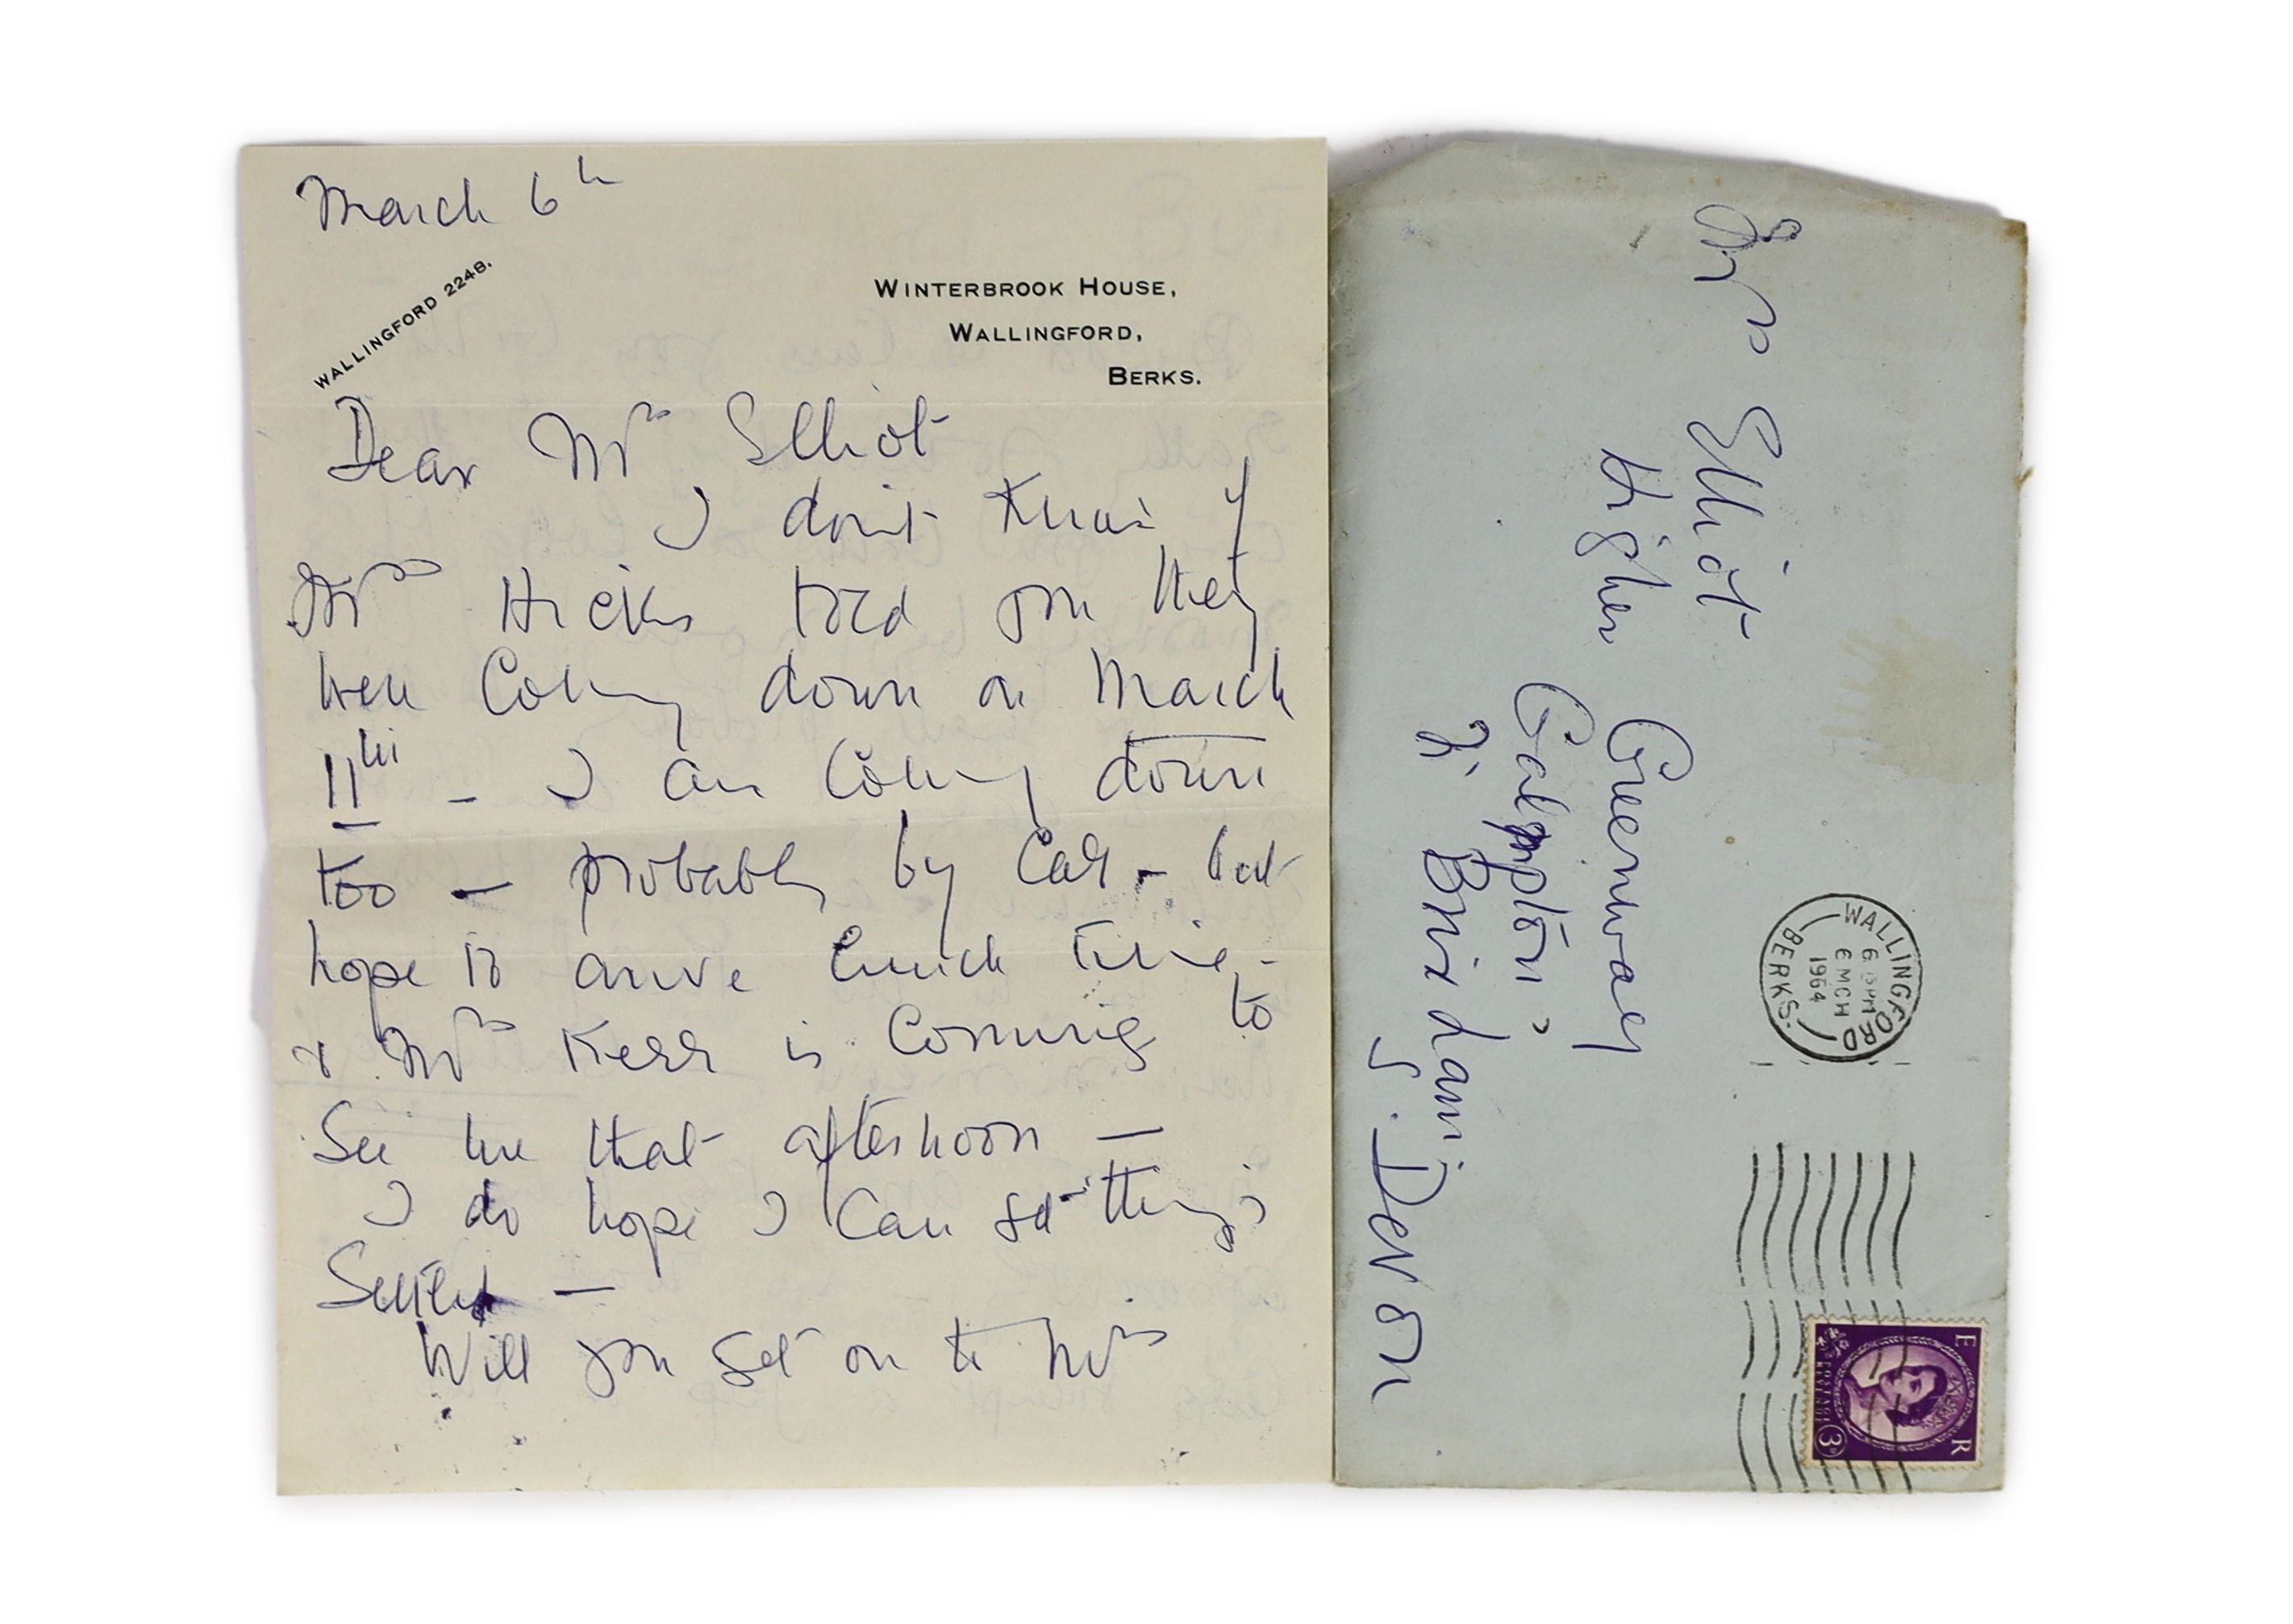 March 6th
WALLINGFORD 2248.
WINTERBROOK HOUSE,
WALLINGFORD,
BERKS.
Dear Mrs Elliot
I don't know if
Mrs Hicks told you they
were coming down on March
11th – I am coming down
too – probably by car – but
hope to arrive lunch time –
& Mrs Kerr is coming to
see me that afternoon –
I do hope I can get things
settled –
Will you get on to Mrs
Mrs Elliot
Higher Greenway
Galmpton
Nr Brixham
S. Devon
WALLINGFORD
6 MCH
1964
BERKS.
E R
3D